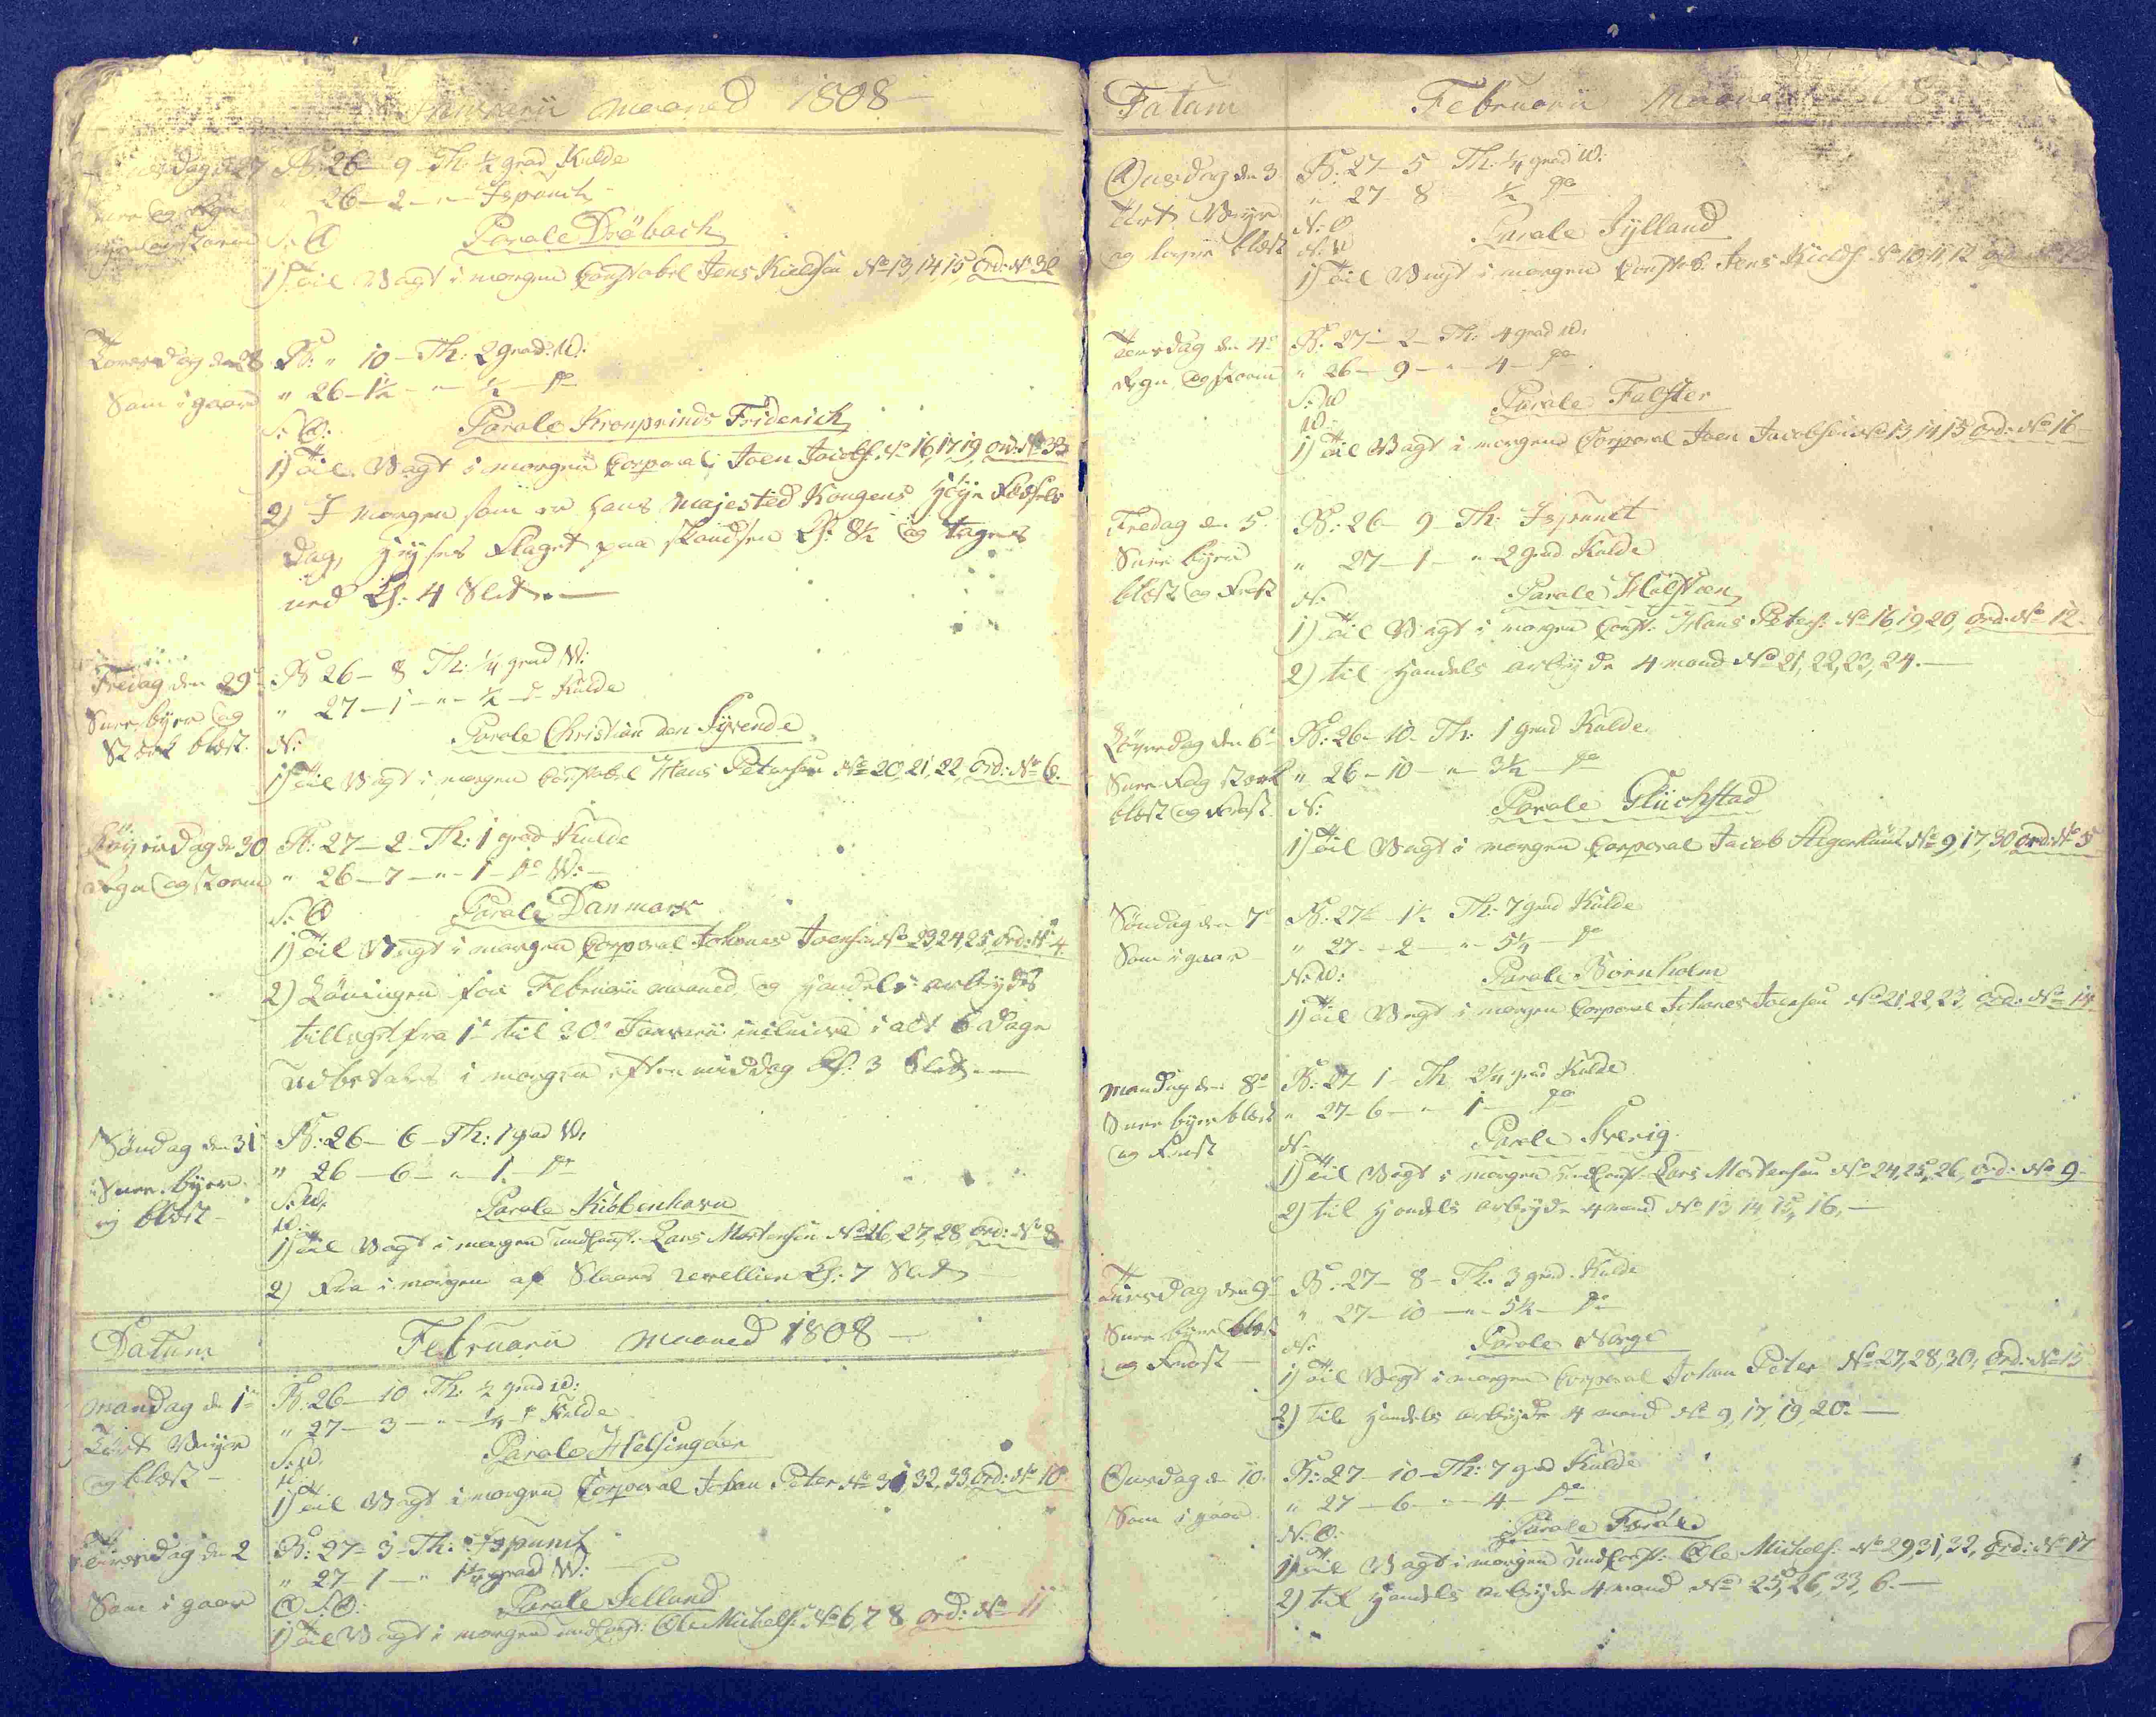 Januarii Maaned 1808
Onsdag d 27 B: 26 — 9 Th: ½ grad Kulde
Snee og Regn 26 — 2 — " — Ispunct
S: O Parole Dröbach
1) Til Vagt i morgen Constabel Jens Kieldsen No 13, 14, 15, Ord: No 32
Torsdag den 28 B: " 10 — Th: 2 grad W:
Som i gaar " 26 — 1½ — " — ½ — do
S: O: Parole Kronprinds Friderich
1) Til Vagt i morgen Corporal Joen Jacobs: No 16, 17, 19, Ord: No 33
2) I Morgen som er Hans Majested Kongens Höye Födsels
Dag, heyses Flaget paa Skandsen Kl: 8½ og tages
ned Kl: 4 Slet. —
Fredag den 29 B 26 — 8 Th: ¼ grad W:
Snee byer og " 27 — 1 — " — ½ — do Kulde
Stærk blæst. N: Parole Christian den Syvende
1) Til Vagt i morgen Constabel Hans Petersen No 20, 21, 22, Ord: No 6.
Löverdag d 30 B: 27 — 2 — Th: 1 grad Kulde
Regn og Storm " 26 — 7 — " — 1 — do W: —
S: O Parole Danmark
1) Til Vagt i morgen Corporal Johanes Joensen No 23 24, 25, Ord: No 4.
2) Löningen for Februarii maaned og Handels arbeyds
tillæget fra 1te til 30te Januarii inclusive i alt 6 Dage
udbetales i morgen efter middag Kl: 3 Slet. —
Söndag den 31 B: 26 — 6 — Th: 1 grad W:
Snee byer " 26 — 6 — " — 1. do
og blæst — S: W: Parole Kiöbenhavn
W:
1) Til Vagt i morgen Undconst: Lars Mortensen No 26, 27, 28, Ord: No 8
2) Fra i morgen af Slaaes revellien Kl: 7 Slet —
Datum Februarii Maaned 1808 —
Mandag d 1te B. 26 — 10 Th: ½ grad W:
" 27 — 3 — " — ¼ do Kulde
Tört Veyer S: W. Parole Helsingöer
og blæst — W:
1) Til Vagt i morgen Corporal Johan Peter No 31, 32, 33 Ord: No 10.
Tiirsdag den 2 B: 27 — 3 — Th: Ispunct
" 27 — 1 — " 1½ grad W: —
Som i gaar O S: O: Parole Selland
1) Til Vagt i morgen undConst: Ole Michels: No 6, 7 8 Ord: No 11
Datum Februarii Maaned 1808
Onsdag den 3 B: 27 — 5 Th: ¼ grad W:
" 27 — 8 — ½ do
Tört Veyer N: O Parole Jylland
og blæst N: W
1) Til Vagt i morgen Constab: Jens Kields: No 10, 11, 12 Ord: No
Torsdag den 4 B: 27 — 2 — Th: 4 grad W:
Regn og Storm " 26 — 9 — " — 4 — do
S: W Parole Falster
W:
1) Til Vagt i morgen Corporal Joen Jacobsen No 13, 14 15 Ord: No 16 —
Fredag den 5. B: 26 — 9 — Th: Ispunct
Snee byer " 27 — 1 — " 2 grad Kulde
blæst og Frost N: Parole Holsteen
1) Til Vagt i morgen Const: Hans Peters: No 16, 19, 20, Ord: No 12.
2) til Handels arbeyde 4 mand No 21, 22, 23, 24. —
Löverdag den 6 B: 26 — 10 — Th: 1 grad Kulde.
Snee Fog stærk " 26 — 10 — " — 3½ — do
blæst og Frost. N: Parole Glückstad
1) Til Vagt i morgen Corporal Jacob No 9, 17, 30 Ord: No 5
Söndag den 7 B: 27 — 1½ Th: 7 grad Kulde
Som i gaar — " 27 — 2 — " — 5¼ — do
N: W: Parole Bornholm
1) Til Vagt i morgen Corporal Johanes Joensen No 21, 22, 23, Ord: No 14
Mandag den 8 B: 27 — 1 — Th 2¼ grad Kulde
Snee byer blæst " 27 — 6 — " — 1 — do
og Frost N: Parole Sverig
1) Til Vagt i morgen undConst: Lars Mortensen No 24, 25, 26, Ord: No 9 —
2) til Handels arbeyde 4 mand No 13 14, 15, 16, —
Tiirsdag den 9 B: 27 — 8 — Th: 3 grad Kulde
Snee byer blæst " 27 — 10 — " — 5½ — do
og Frost — N: Parole Norge
1) Til Vagt i morgen Corporal Johan Peter No 27, 28, 30, Ord: No 15
2) til Handels arbeyde 4 mand No 9, 17, 19, 20. —
Onsdag d 10. B: 27 — 10 — Th: 7 grad Kulde
Som i gaar " 27 — 6 — " — 4 — do
N: O: Parole Færöe
1) Til Vagt i morgen undConst: Ole Michels: No 29, 31, 32, Ord: No 17
2) til Handels arbeyde 4 mand No 25, 26, 33, 6. —